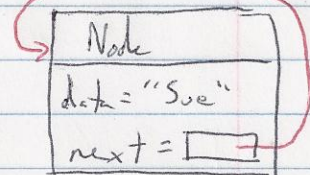 Node
data = "Sue"
next =